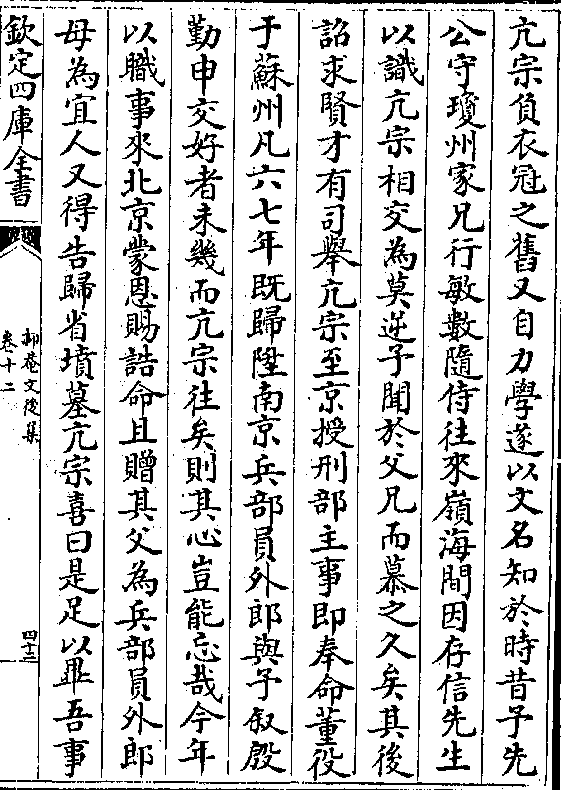 亢宗負衣冠之舊又自力學遂以文名知於時昔予先
公守瓊州家兄行敏數隨侍往來嶺海間因存信先生
以識亢宗相交為莫逆予聞於父兄而慕之久矣其後
詔求賢才有司舉亢宗至京授刑部主事即奉命董役
于蘇州凡六七年既歸陞南京兵部員外郎與予叙殷
勤申交好者未幾而亢宗往矣則其心豈能忘哉今年
以職事來北京蒙恩賜誥命且贈其父為兵部員外郎
母為宜人又得告歸省墳墓亢宗喜曰是足以畢吾事
欽定四庫全書
抑菴文後集
卷十二
四十三